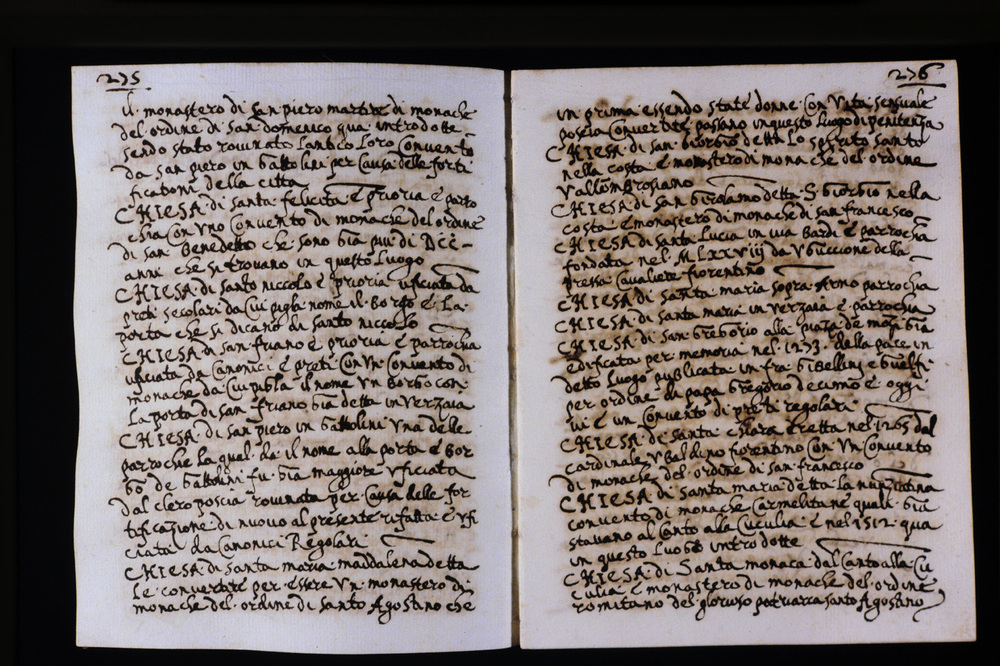 275
Il monastero di san piero martire di monache
del ordine di san domenico qua introdotte
sendo stato rovinato lantico loro convento
da san piero in gattolini per causa delle forti
ficationi della citta
CHIESA di santa felicita è prioria è parro
chia con vno convento di monache del ordine
di san Benedetto che sono gia piu di DCC
anni che si trovano in questo luogo
CHIESA di santo niccolo è prioria uficiata da
preti secolari da cui piglia nome il borgo è la
porta che si dicano di santo niccolo
CHIESA di san friano è prioria è parrochia
uficiata da canonici è preti con vn convento di
monache da cui piglia il nome vn borgo con
la porta di san friano gia detta in verzaia
CHIESA di san piero in gattolini vna delle
parrochie la qual da il nome alla porta è bor
go de gattolini fu gia maggiore vficiata
dal clero poscia rovinata per causa delle for
tificazione di nuovo al presente rifatta è vfi
ciata da canonici Regolari
CHIESA di santa maria maddalena detta
le convertite per essere vn monastero di
monache del ordine di santo Agostano che
276
in prima essendo state donne con vita sensuale
poscia convertite passano in questo luogo di penitenza
CHIESA di san giorgio detta lo spirito santo
nella costa è monastero di monache del ordine
vallembrosiano
CHIESA di san girolamo detta S giorgio nella
costa è monastero di monache di san francesco
CHIESA di santa lucia in via bardi è parrochia
fondata nel MLXXViij da vguccione della
pressa cavaliere fiorentino
CHIESA di santa maria sopra Arno parrochia
CHIESA di santa maria in verzaia è parrochia
CHIESA di san gregorio alla piaza de mozi gia
edificata per memoria nel 1273 della pace in
detto luogo publicata in fra gibellini è guelfi
per ordine di papa gregorio decimo è oggi
vi è un convento di preti regolari
CHIESA di santa chiara eretta nel 1265 dal
cardinale vbaldino fiorentino con vn convento
di monache del ordine di san francesco
CHIESA di santa maria detta la nunziatina
convento di monache carmelitane quali gia
stavano al canto alla cuculia è nel 1512 qua
in questo luogo introdotte
CHIESA di Santa monaca dal canto alla cu
culia è monastero di monache del ordine
romitano del glorioso patriarca santo Agostano